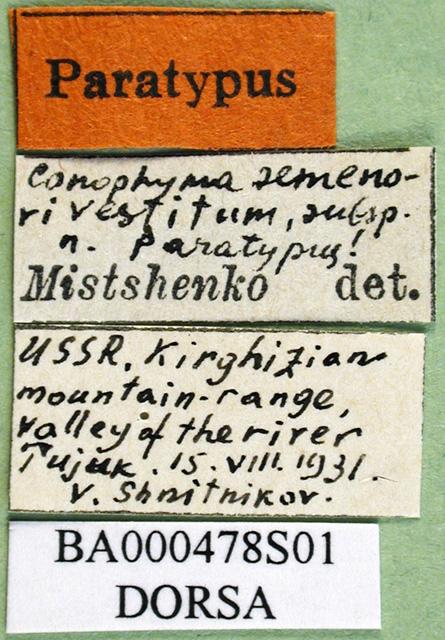 Paratypus
Conophyma semeno-
vi vestitum, subsp.
n. Paratypus!
Mistshenko det.
USSR, Kirghizian
mountain-range,
valley of the river
Tujuk. 15. VIII. 1931.
V. Shnitnikov.
BA000478S01
DORSA